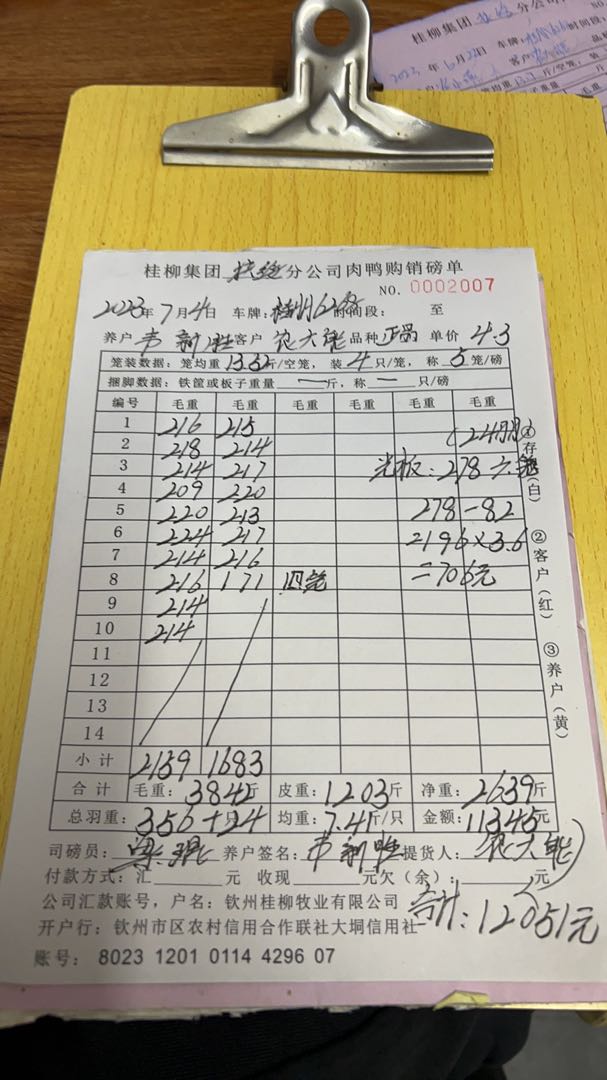 桂柳集团
2023年6月
桂柳集团 分公司肉鸭购销磅单
NO. 0002007
2023年7月4日 车牌: 时间段: 至
养户 韦新胜 客户 农大能 品种 正品 单价 4.3
笼装数据:笼均重 13.52 斤/空笼,装 4 只/笼,称 5 笼/磅
捆脚数据:铁筐或板子重量 — 斤,称 — 只/磅
编号 毛重 毛重 毛重 毛重 毛重 毛重
1 216 215
2 218 214
3 214 217 光板:278
4 209 220
5 220 213 278-82
6 224 217 2196×3.6
7 214 216 =706元
8 216 171 四笼
9 214
10 214
11
12
13
14
小计 2159 1683
合计 毛重:3842斤 皮重:1203斤 净重:2639斤
总羽重:356+24只 均重:7.41斤/只 金额:11345元
司磅员: 养户签名:韦新胜 提货人:农大能
付款方式:汇 元 收现 元欠(余): 元
公司汇款账号,户名:钦州桂柳牧业有限公司
合计:12051元
开户行:钦州市区农村信用合作联社大垌信用社
账号:8023 1201 0114 4296 07
①存(白) ②客户(红) ③养户(黄)